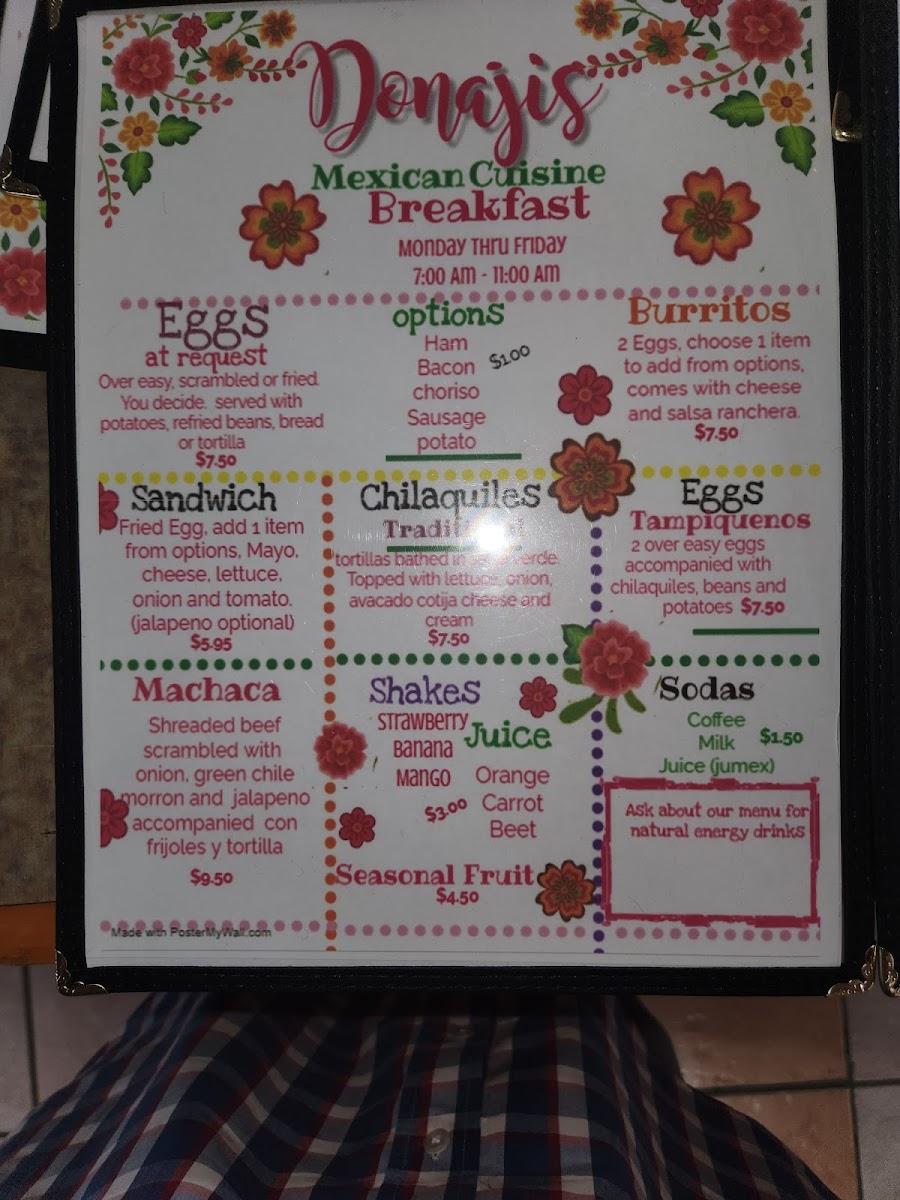 Donajis
Mexican Cuisine
Breakfast
Monday thru Friday
7:00 AM - 11:00 AM
Eggs
at request
Over easy, scrambled or fried.
You decide. served with
potatoes, refried beans, bread
or tortilla
$7.50
options
Ham
Bacon
choriso
Sausage
potato
$1.00
Burritos
2 Eggs, choose 1 item
to add from options,
comes with cheese
and salsa ranchera.
$7.50
Sandwich
Fried Egg, add 1 item
from options, Mayo,
cheese, lettuce,
onion and tomato.
(jalapeno optional)
$5.95
Chilaquiles
tortillas bathed in verde.
Topped with lettuce, onion,
avacado cotija cheese and
cream
$7.50
Eggs
Tampiquenos
2 over easy eggs
accompanied with
chilaquiles, beans and
potatoes $7.50
Machaca
Shreaded beef
scrambled with
onion, green chile
morron and jalapeno
accompanied con
frijoles y tortilla
$9.50
Shakes
Strawberry
Banana
Mango
$3.00
Juice
Orange
Carrot
Beet
Seasonal Fruit
$4.50
Sodas
Coffee
Milk
Juice (jumex)
$1.50
Ask about our menu for
natural energy drinks
Made with PosterMyWall.com